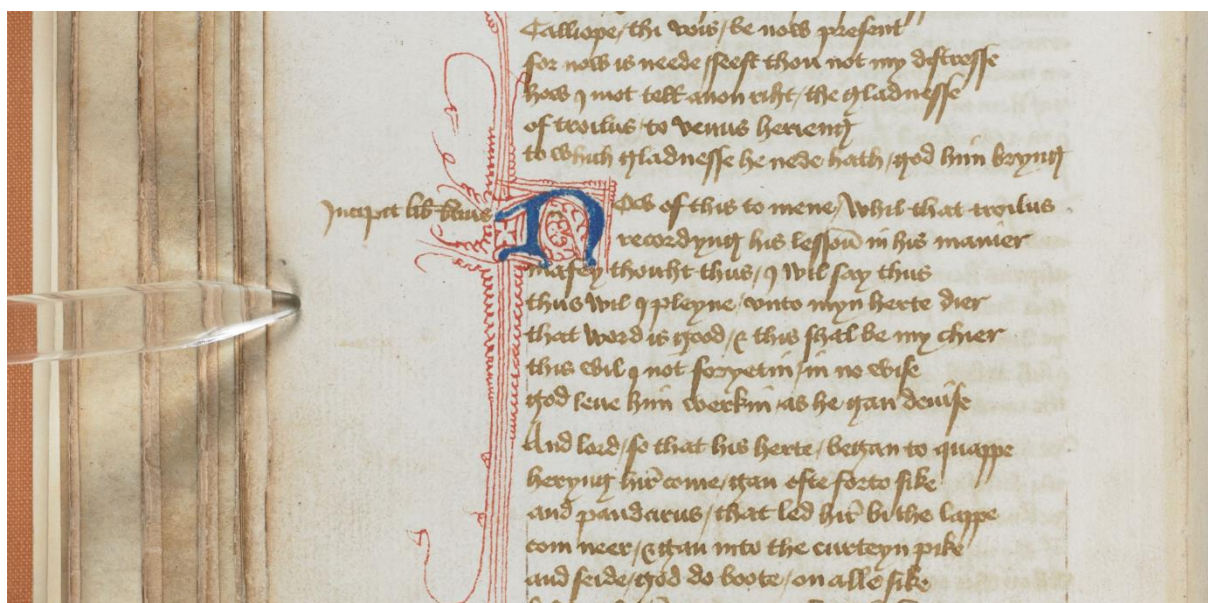 Calliope / thi vois / be now present
for now is neede / seest thou not my distresse
how I mot tell anon riht / the gladnesse
of troilus / to Venus herieng
to which gladnesse he nede hath / god him bryng
Incipit lib̄ t̄cius
Now of this to mene / Whil that troilus
recordyng his lessoū in his manier
mafey thouht thus / I wil say thus
thus wil I pleyne / vnto myn herte dier
that word is good / & this shal be my chier
this wil I not foryetin / in no wise
god leue him werkin / as he gan deuise
And lord / so that his herte / began to quappe
heryng hir̄ come / gan ofte forto sike
and pandarus / that led hir̄ bi the lappe
com neer / & gan into the curteyn pike
and seide / god do boote / on alle sike